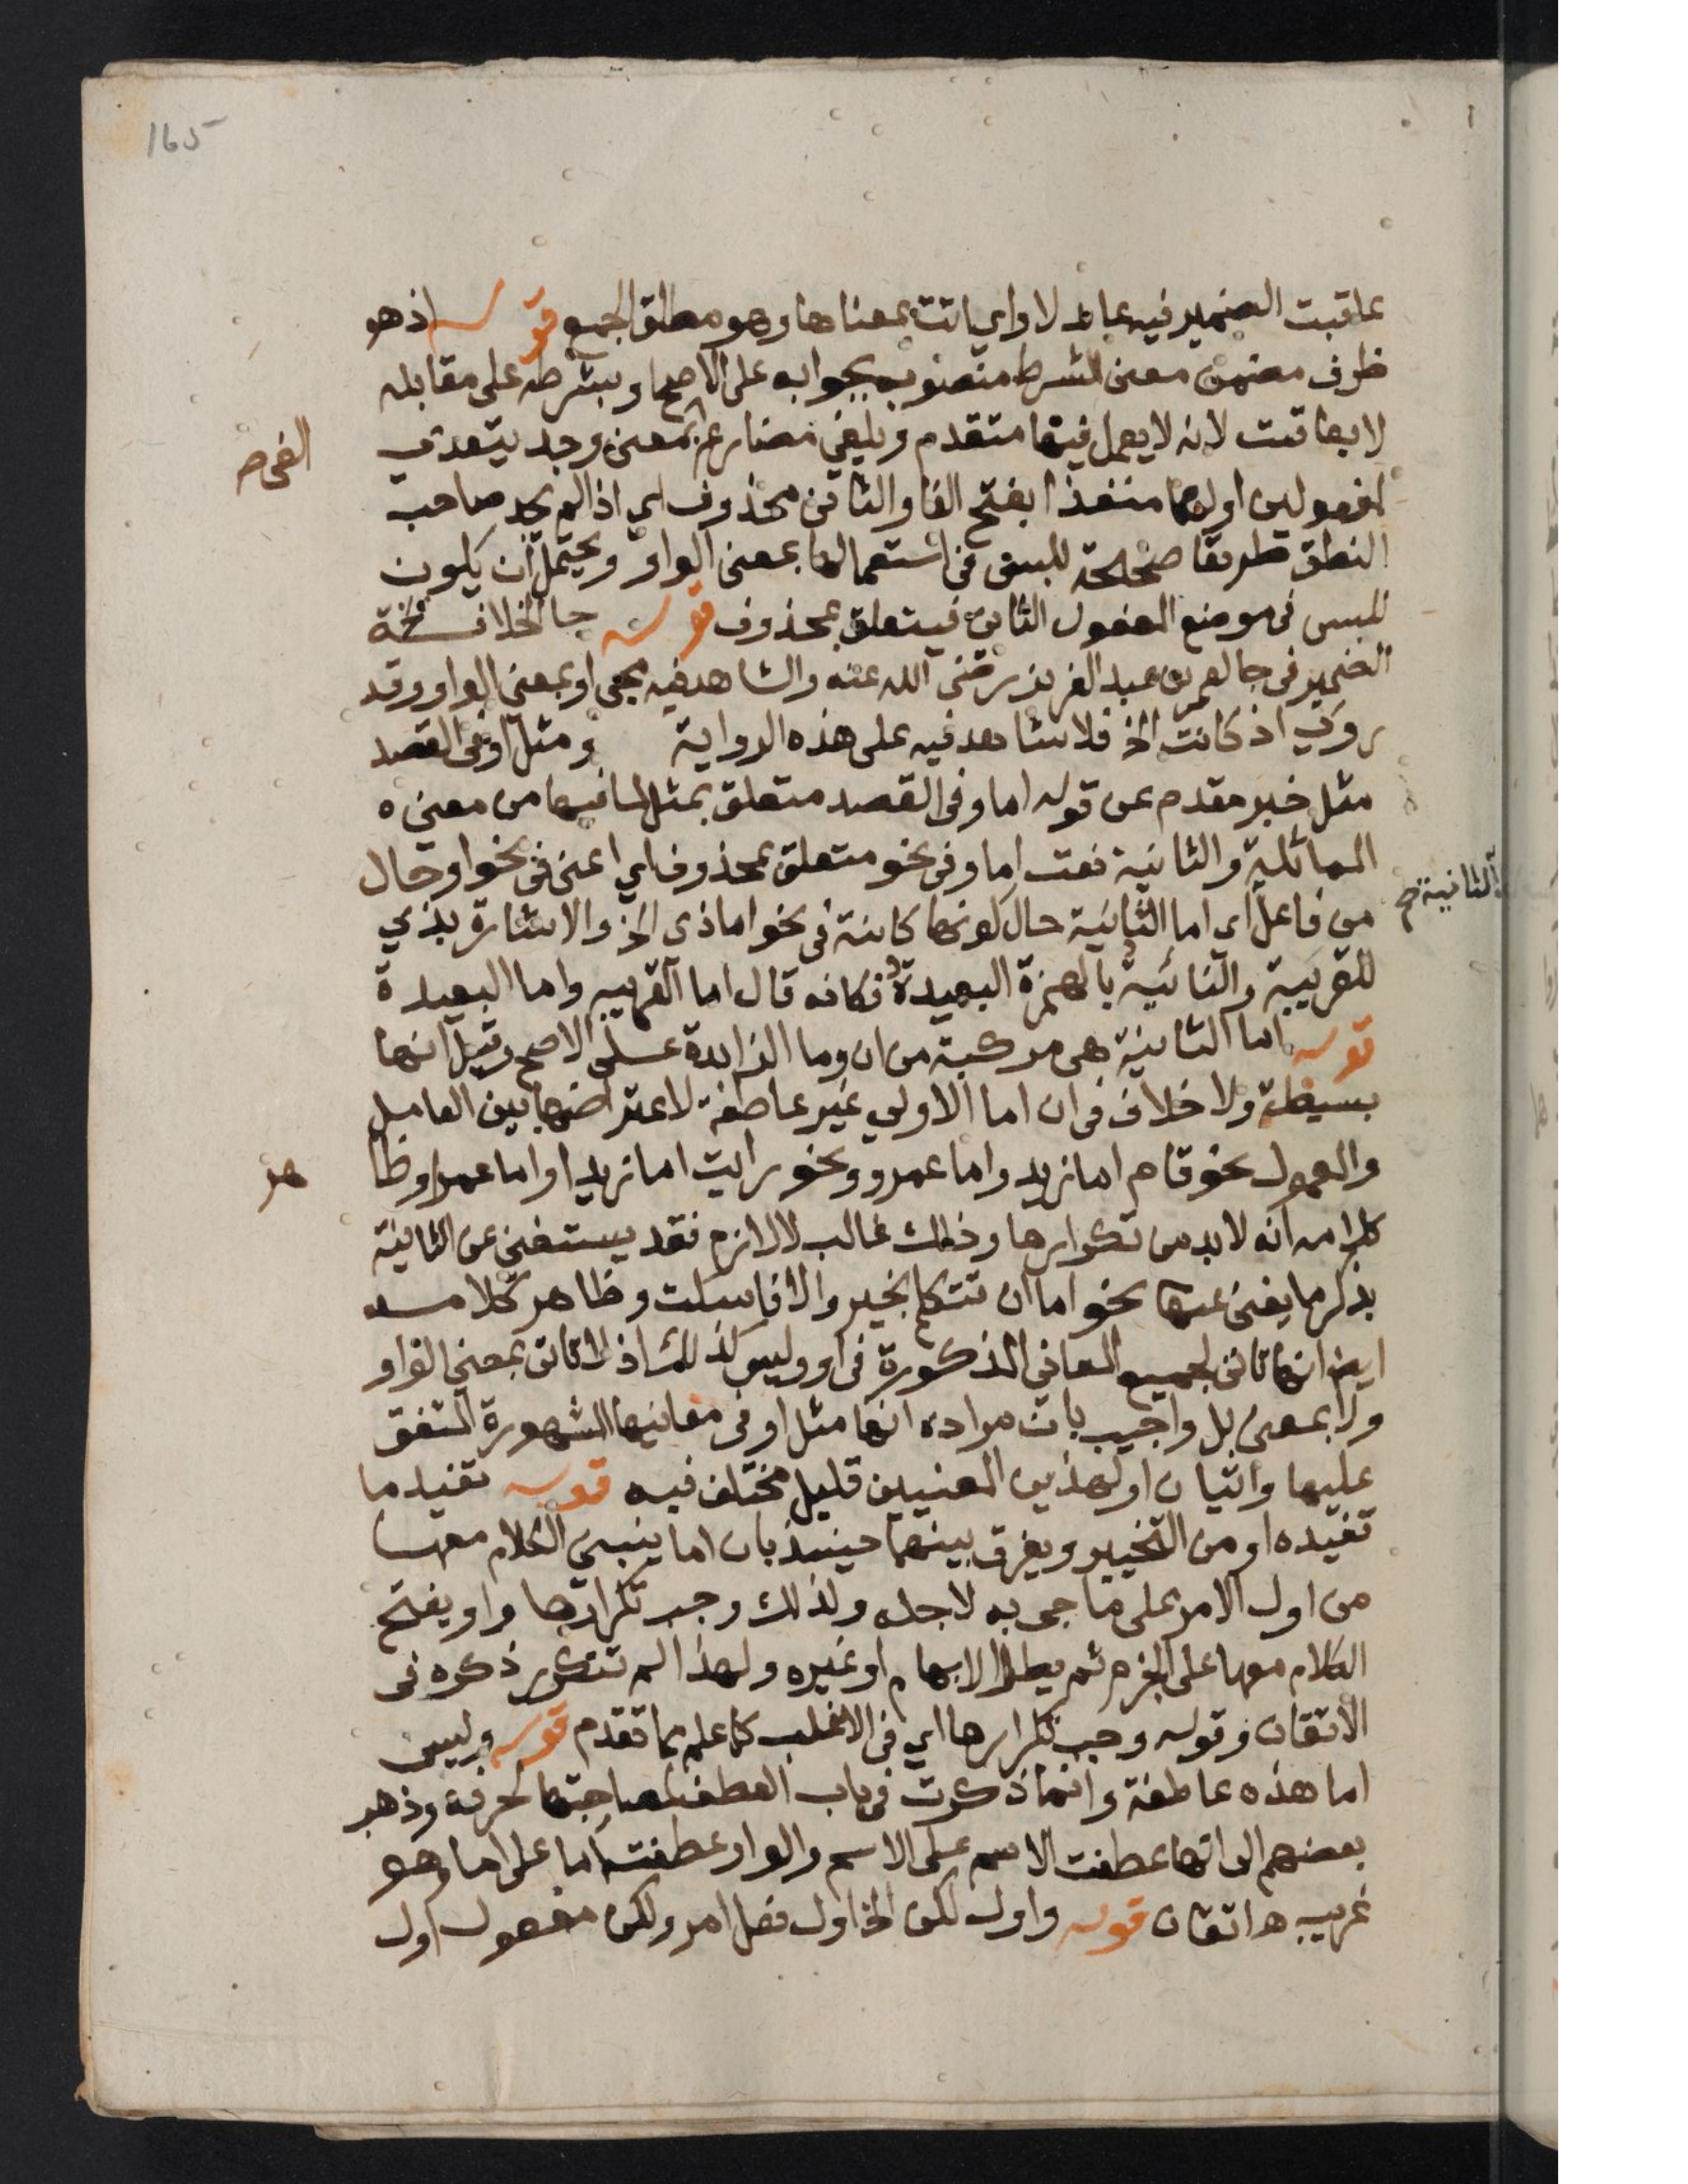 165
عاقبت الضمير فيه عائد لاو اي اتت بمعناها وهو مطلق الجمع قوله اذ هو
ظرف مضمن معنى الشرط منصوب بجوابه على الاصح او بشرطه على مقابله
لا بعاقبت لانه لا يعمل فيها متقدم ويلفي مضارع بمعنى وجد يتعدى
لمفعولين اولهما منفذا بفتح الفا والثاني محذوف اي اذا لم يجد صاحب
النطق طريقا صحيحة للبس في استعمالها بمعنى الواو ويحتمل ان يكون
للبس في موضع المفعول الثاني فيتعلق بمحذوف قوله جا الخلافة
الضمير في جا لعمر بن عبد العزيز رضي الله عنه والشاهد فيه مجي او بمعنى الواو وقد
روي اذ كانت الخ فلا شاهد فيه على هذه الرواية ومثل او في القصد
مثل خبر مقدم عن قوله اما وفي القصد متعلق بمثل لما فيها من معنى
المماثلة والثانية نعت اما وفي نحو متعلق بمحذوف اي اعنى في نحو او حال
من فاعل اي اما الثانية حال كونها كاينة في نحو اما ذى الخ والاشارة بذي
للقريبة والنائية بالهمزة البعيدة فكانه قال اما القريبه واما البعيدة
قوله اما الثانية هي مركبة من ان وما الزايدة على الاصح وقيل انها
بسيطة ولا خلاف في ان اما الاولي غير عاطفة لاعتراضها بين العامل
والمعمول نحو قام اما زيد واما عمرو ونحو رايت اما زيدا واما عمرا وظا
كلامه انه لابد من تكرارها وذلك غالب لا لازم فقد يستغنى عن الثانية
بذكر ما يغنى عنها نحو اما ان تتكلم بخير والا فاسكت وظاهر كلامه
ايضا انها تاتى لجميع المعاني المذكورة في او وليس كذلك اذ لا تاتى بمعنى الواو
ولا بمعنى بل واجيب بان مراده انها مثل او في معانيها المشهورة المتفق
عليها واتيان او لهذين المعنيين قليل مختلف فيه قوله تفيد ما
تفيده او من التخيير ويفرق بينهما حينئذ بان اما ينبني الكلام معها
من اول الامر على ما جى به لاجله ولذلك وجب تكرارها واو يفتتح
الكلام معها على الجزم ثم يطرا الابهام او غيره ولهذا لم تتكرر ذكره في
الاتقان وقوله وجب تكرارها اي في الاغلب كما علم مما تقدم قوله وليس
اما هذه عاطفة وانما ذكرت في باب العطف لمصاحبتها لحرفه وذهب
بعضهم الى انها عطفت الاسم على الاسم والواو عطفت اما على اما وهو
غريب ه اتقان قوله واول لكن الخ اول فعل امر ولكن مفعول اول
الثانية صح
هر